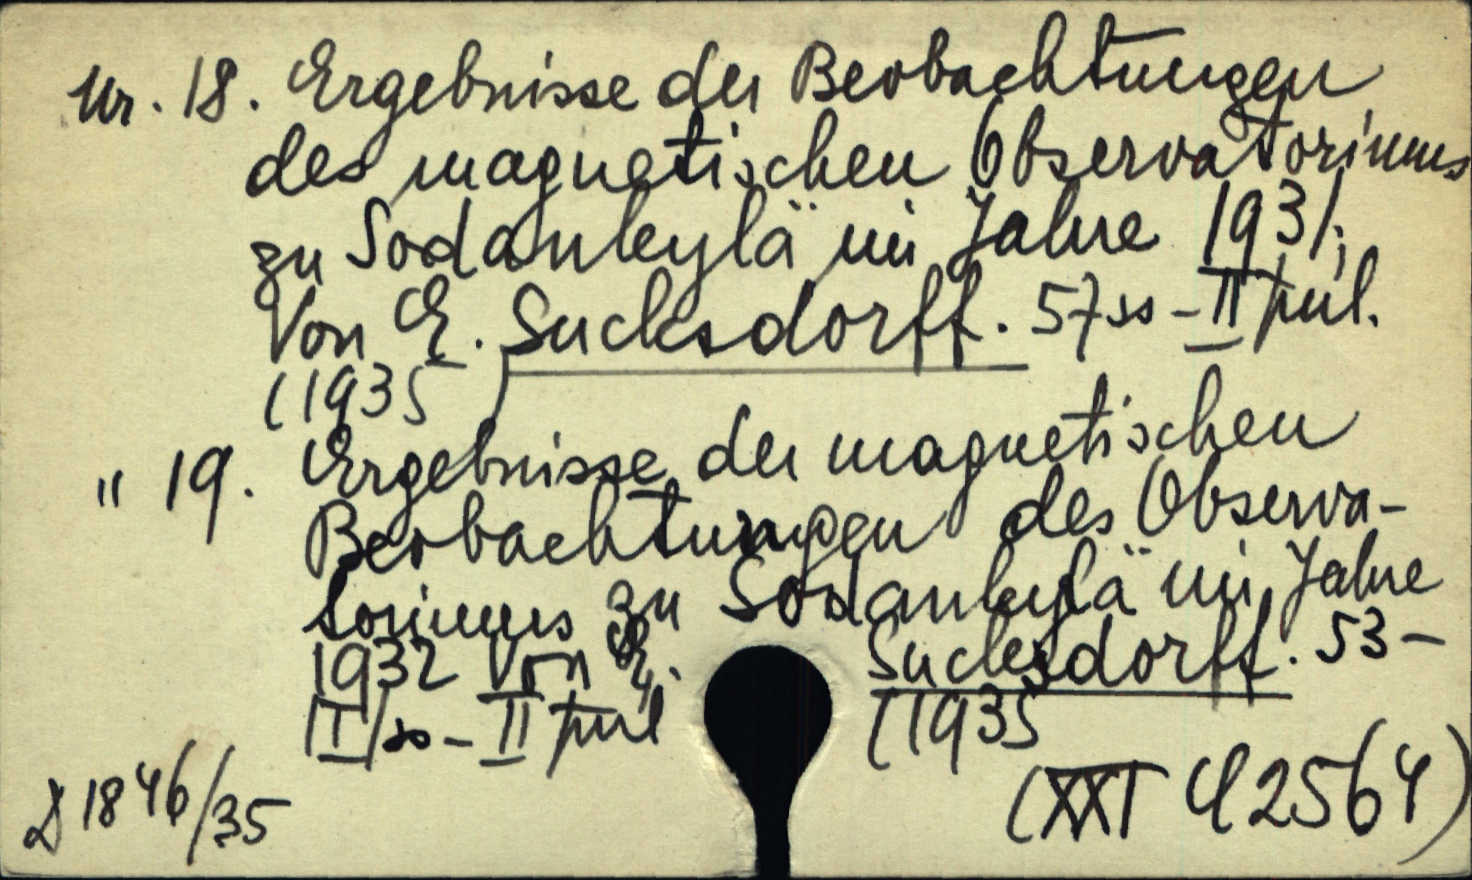 Nr. 18. Ergebnisse der Beobachtungen
des magnetischen Observatoriums
zu Sodankylä im Jahre 1931;
Von E. Sucksdorff. 57 ss - II pul.
(1935)
" 19. Ergebnisse der magnetischen
Beobachtungen des Observa-
toriums zu Sodankylä im Jahre
1932 Von E. Sucksdorff. 53 -
II/ss - II pul (1935
D 1846/35 (XXI 42564)